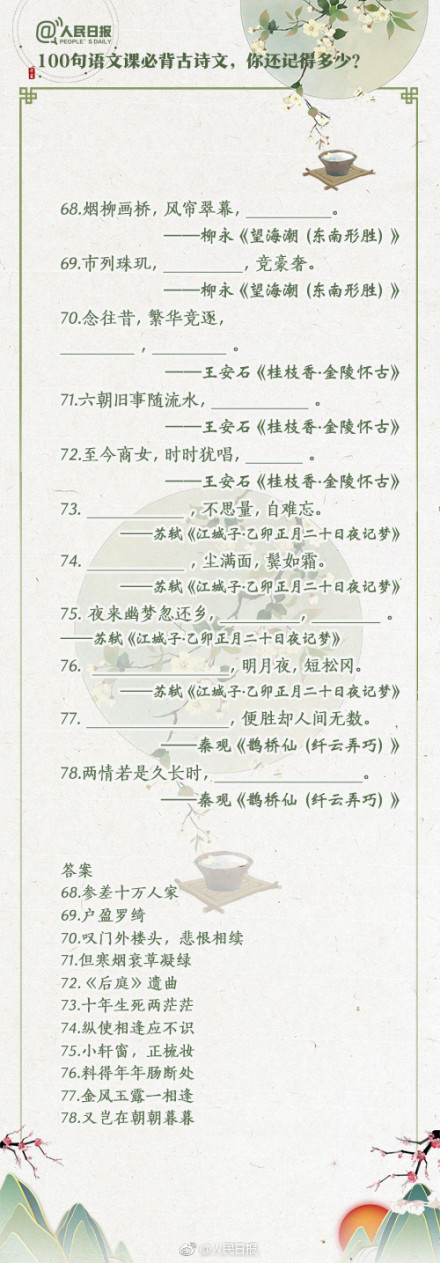 @人民日报
PEOPLE'S DAILY
100句语文课必背古诗文，你还记得多少？
68.烟柳画桥，风帘翠幕，__________。
——柳永《望海潮（东南形胜）》
69.市列珠玑，_________，竞豪奢。
——柳永《望海潮（东南形胜）》
70.念往昔，繁华竞逐，
________，________。
——王安石《桂枝香·金陵怀古》
71.六朝旧事随流水，___________。
——王安石《桂枝香·金陵怀古》
72.至今商女，时时犹唱，______。
——王安石《桂枝香·金陵怀古》
73. ___________，不思量，自难忘。
——苏轼《江城子·乙卯正月二十日夜记梦》
74. ___________，尘满面，鬓如霜。
——苏轼《江城子·乙卯正月二十日夜记梦》
75. 夜来幽梦忽还乡，_________，________。
——苏轼《江城子·乙卯正月二十日夜记梦》
76. _______________，明月夜，短松冈。
——苏轼《江城子·乙卯正月二十日夜记梦》
77. ________________，便胜却人间无数。
——秦观《鹊桥仙（纤云弄巧）》
78.两情若是久长时，________________。
——秦观《鹊桥仙（纤云弄巧）》
答案
68.参差十万人家
69.户盈罗绮
70.叹门外楼头，悲恨相续
71.但寒烟衰草凝绿
72.《后庭》遗曲
73.十年生死两茫茫
74.纵使相逢应不识
75.小轩窗，正梳妆
76.料得年年肠断处
77.金风玉露一相逢
78.又岂在朝朝暮暮
@人民日报